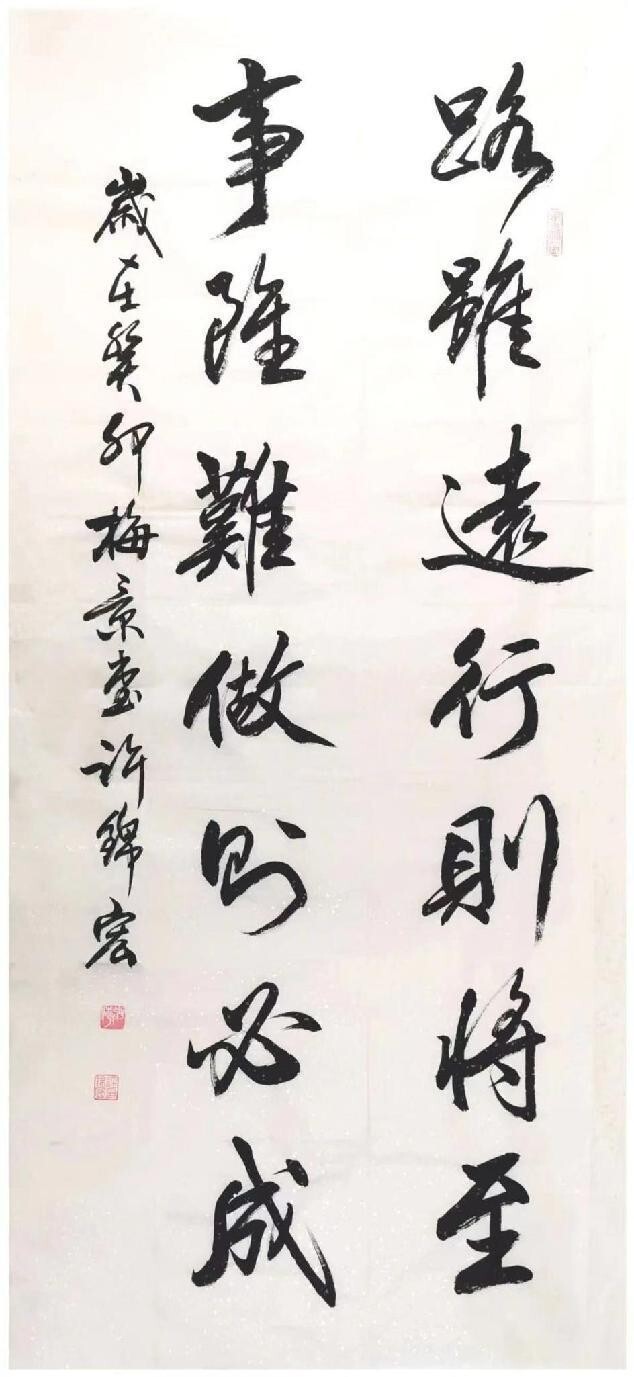 路雖遠行則將至
事雖難做则必成
歲在癸卯梅景堂許錦宏